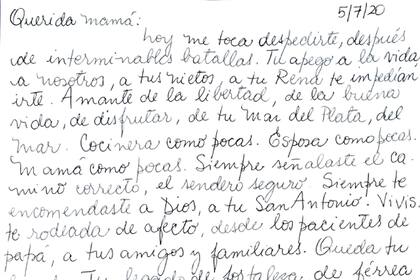 5/7/20
Querida mamá:
hoy me toca despedirte, después
de interminables batallas. Tu apego a la vida
a nosotros, a tus nietos, a tu René te impedían
irte. Amante de la libertad, de la buena
vida, de disfrutar, de tu Mar del Plata, del
mar. Cocinera como pocas. Esposa como pocas.
Mamá como pocas. Siempre señalaste el ca-
mino correcto, el sendero seguro. Siempre te
encomendaste a Dios, a tu San Antonio. Vivis-
te rodeada de afecto, desde los pacientes de
papá, a tus amigos y familiares. Queda tu
Tu legado de fortaleza, de férrea